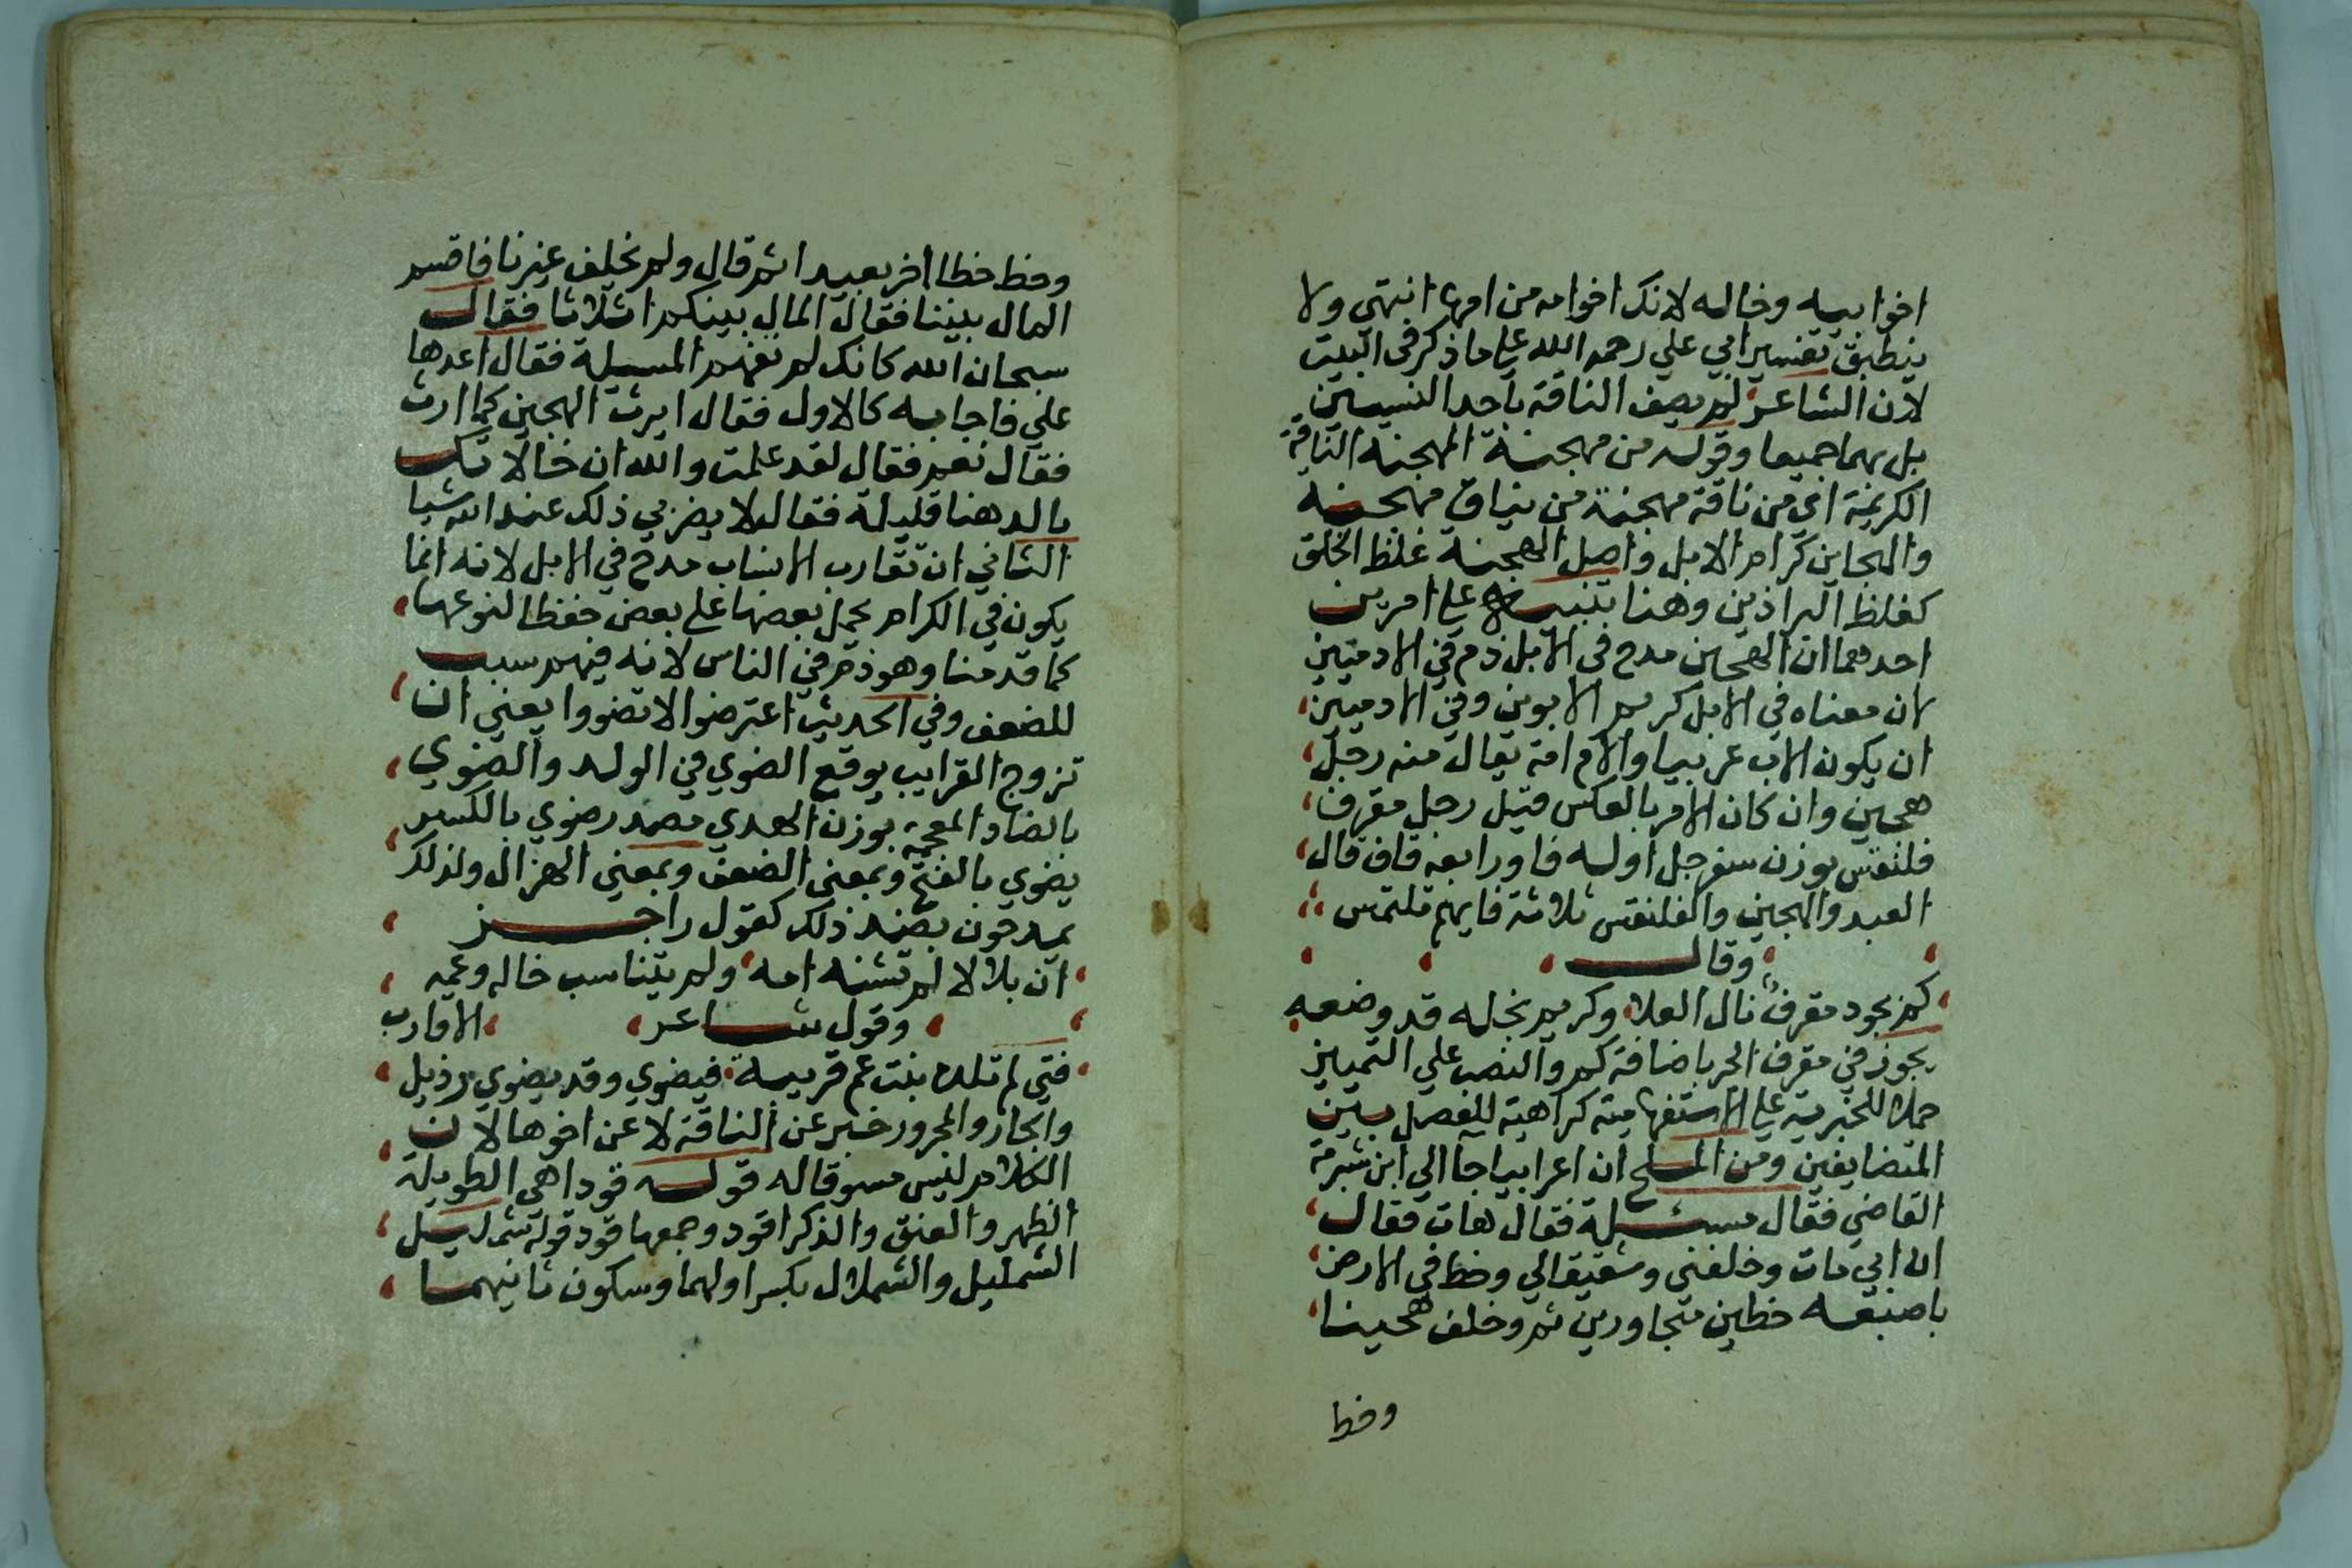 اخوابيه وخاله لانك اخوامه من امها انتهي ولا
ينطبق تفسير ابي علي رحمه الله علي ما ذكر في البيت
لان الشاعر لم يصف الناقة باحد النسبين
بل بهما جميعا وقوله من مهجنة المهجنه الناقة
الكريمة اي من ناقة مهجنة من نياق مهجنه
والهجاين كرام الابل واصل الهجنة غلظ الخلق
كغلظ البراذين وهنا تنبيه علي امرين
احدهما ان الهجين مدح في الابل ذم في الادميين
لان معناه في الابل كريم الابوين وفي الادميين
ان يكون الاب عربيا والام امة يقال منه رجل
هجين وان كان الامر بالعكس قيل رجل مقرف
فلنقس بوزن سفرجل اوله فا ورابعه قاف قال
العبد والهجين والفلنقس ثلاثة فايهم تلتمس
وقال
كم بجود مقرف نال العلا وكريم بخله قد وضعه
يجوز في مقرف الجر باضافة كم والنصب علي التمييز
حملا للخبرية علي الاستفهامية كراهية للفصل بين
المتضايفين ومن الملح ان اعرابيا جا الي ابن شبرمة
القاضي فقال مسئلة فقال هات فقال
ان ابي مات وخلفني وشقيقا لي وخط في الارض
باصبعه خطين متجاورين ثم وخلف هجينا
وخط
وخط خطا اخر بعيدا ثم قال ولم يخلف غيرنا فاقسم
المال بيننا فقال المال بينكم اثلاثا فقال
سبحان الله كانك لم تفهم المسيلة فقال اعدها
علي فاجابه كالاول فقال ايرث الهجين كما ارث
فقال نعم فقال لقد علمت والله ان خالاتك
بالدهنا قليلة فقال لا يضرني ذلك عند الله شيا
الثاني ان تقارب الانساب مدح في الابل لانه انما
يكون في الكرام يحمل بعضها علي بعض حفظا لنوعها
كما قدمنا وهو ذم في الناس لانه فيهم سبب
للضعف وفي الحديث اغتربوا لا تضووا يعني ان
تزوج القرايب يوقع الضوي في الولد والضوي
بالضاد المعجمة بوزن الهدي مصدر ضوي بالكسر
يضوي بالفتح وبمعني الضعف وبمعني الهزال ولذلك
يمدحون بضد ذلك كقول راجز
ان بلالا لم تشنه امه ولم يتناسب خاله وعمه
وقول شاعر الاقارب
فتي لم تلده بنت عم قريبة فيضوي وقد يضوي رذيل
والجار والمجرور خبر عن الناقة لا عن اخوها لان
الكلام ليس مسوقا له قوله قودا هي الطويلة
الظهر والعنق والذكر اقود وجمعها قود قوله شمليل
الشمليل والشملال بكسر اولهما وسكون ثانيهما